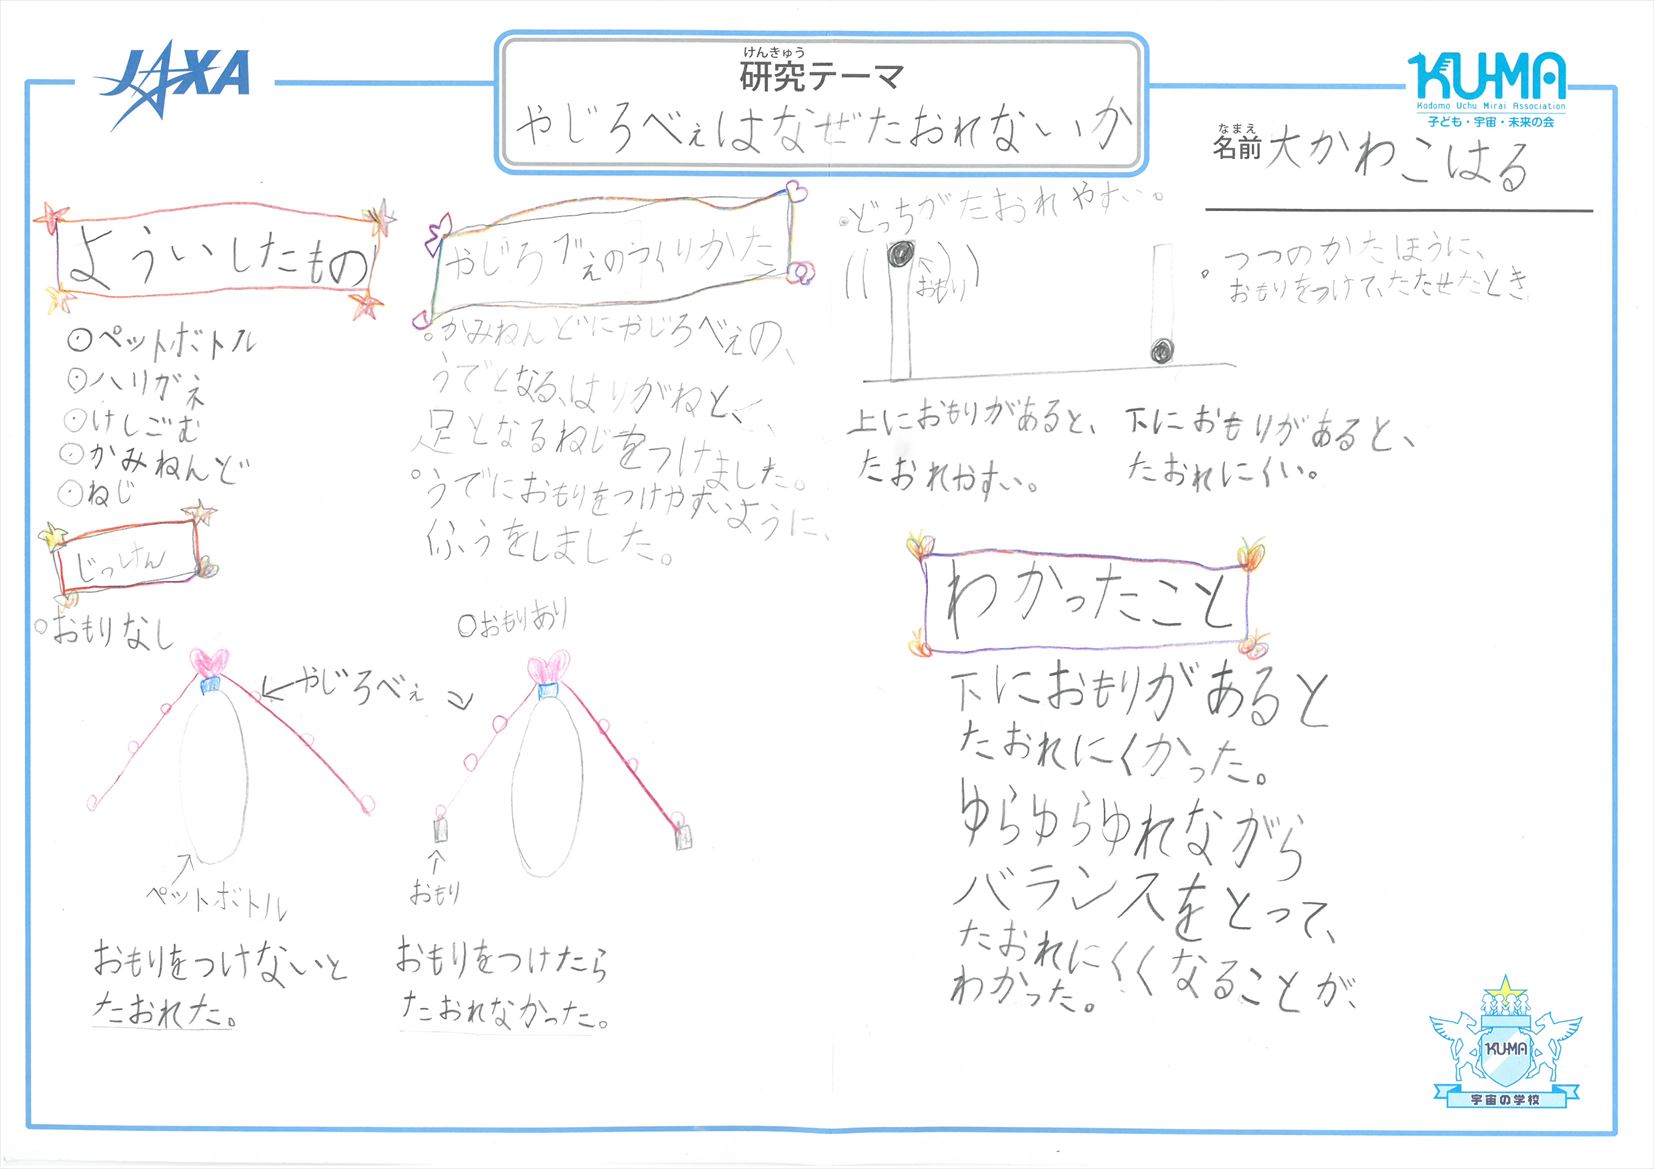 JAXA
けんきゅう
研究テーマ
やじろべぇはなぜたおれないか
KU-MA
Kodomo Uchu Mirai Association
子ども・宇宙・未来の会
なまえ
名前 大かわこはる
よういしたもの
⊙ペットボトル
⊙ハリガネ
⊙けしごむ
⊙かみねんど
⊙ねじ
やじろべぇのつくりかた
○かみねんどにやじろべぇの、
うでとなる、はりがねと、
足となるねじをつけました。
○うでにおもりをつけやすいように、
くふうをしました。
じっけん
○おもりなし
やじろべぇ
ペットボトル
おもりをつけないと
たおれた。
○おもりあり
おもり
おもりをつけたら
たおれなかった。
・どっちがたおれやすい。
おもり
○つつのかたほうに、
おもりをつけて、たたせたとき
上におもりがあると、
たおれやすい。
下におもりがあると、
たおれにくい。
わかったこと
下におもりがあると
たおれにくかった。
ゆらゆらゆれながら
バランスをとって、
たおれにくくなることが、
わかった。
KU-MA
宇宙の学校